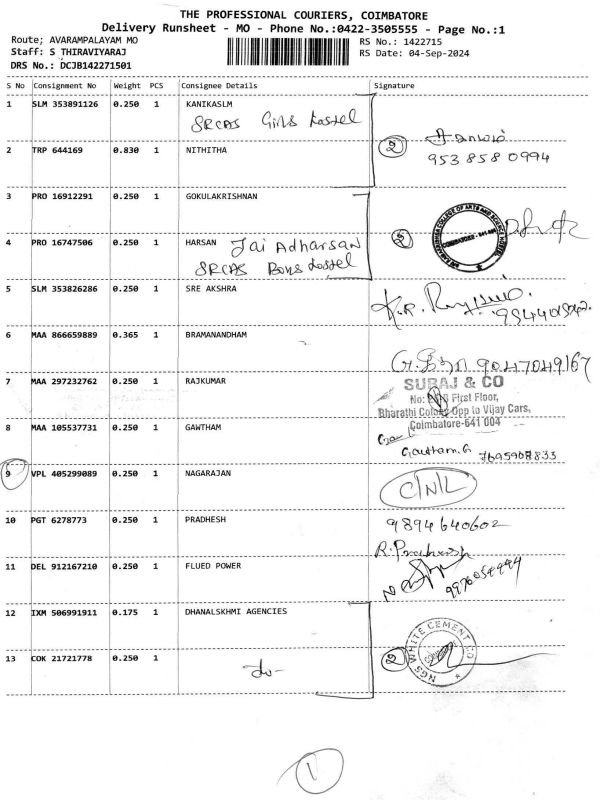 THE PROFESSIONAL COURIERS, COIMBATORE
Delivery Runsheet - MO - Phone No.:0422-3505555 - Page No.:1
Route; AVARAMPALAYAM MO
Staff: S THIRAVIYARAJ
DRS No.: DCJB142271501
RS No.: 1422715
RS Date: 04-Sep-2024
S No Consignment No Weight PCS Consignee Details Signature
1 SLM 353891126 0.250 1 KANIKASLM
SRCAS Girls hostel
2 TRP 644169 0.830 1 NITHITHA
2
953858 0994
3 PRO 16912291 0.250 1 GOKULAKRISHNAN
4 PRO 16747506 0.250 1 HARSAN Jai Adharsan
SRCAS Boys hostel
2
COIMBATORE - 641
5 SLM 353826286 0.250 1 SRE AKSHRA
K.R.
6 MAA 866659889 0.365 1 BRAMANANDHAM
9047049167
7 MAA 297232762 0.250 1 RAJKUMAR
SURAJ & CO
First Floor,
Bharathi Colony Opp to Vijay Cars,
Coimbatore-641 004
8 MAA 105537731 0.250 1 GAWTHAM
Gautham.G
9 VPL 405299089 0.250 1 NAGARAJAN
C/N/L
10 PGT 6278773 0.250 1 PRADHESH
9894640602
11 DEL 912167210 0.250 1 FLUED POWER
12 IXM 506991911 0.175 1 DHANALSKHMI AGENCIES
13 COK 21721778 0.250 1
do-
2
NGS WHITE CEMENT CO
1